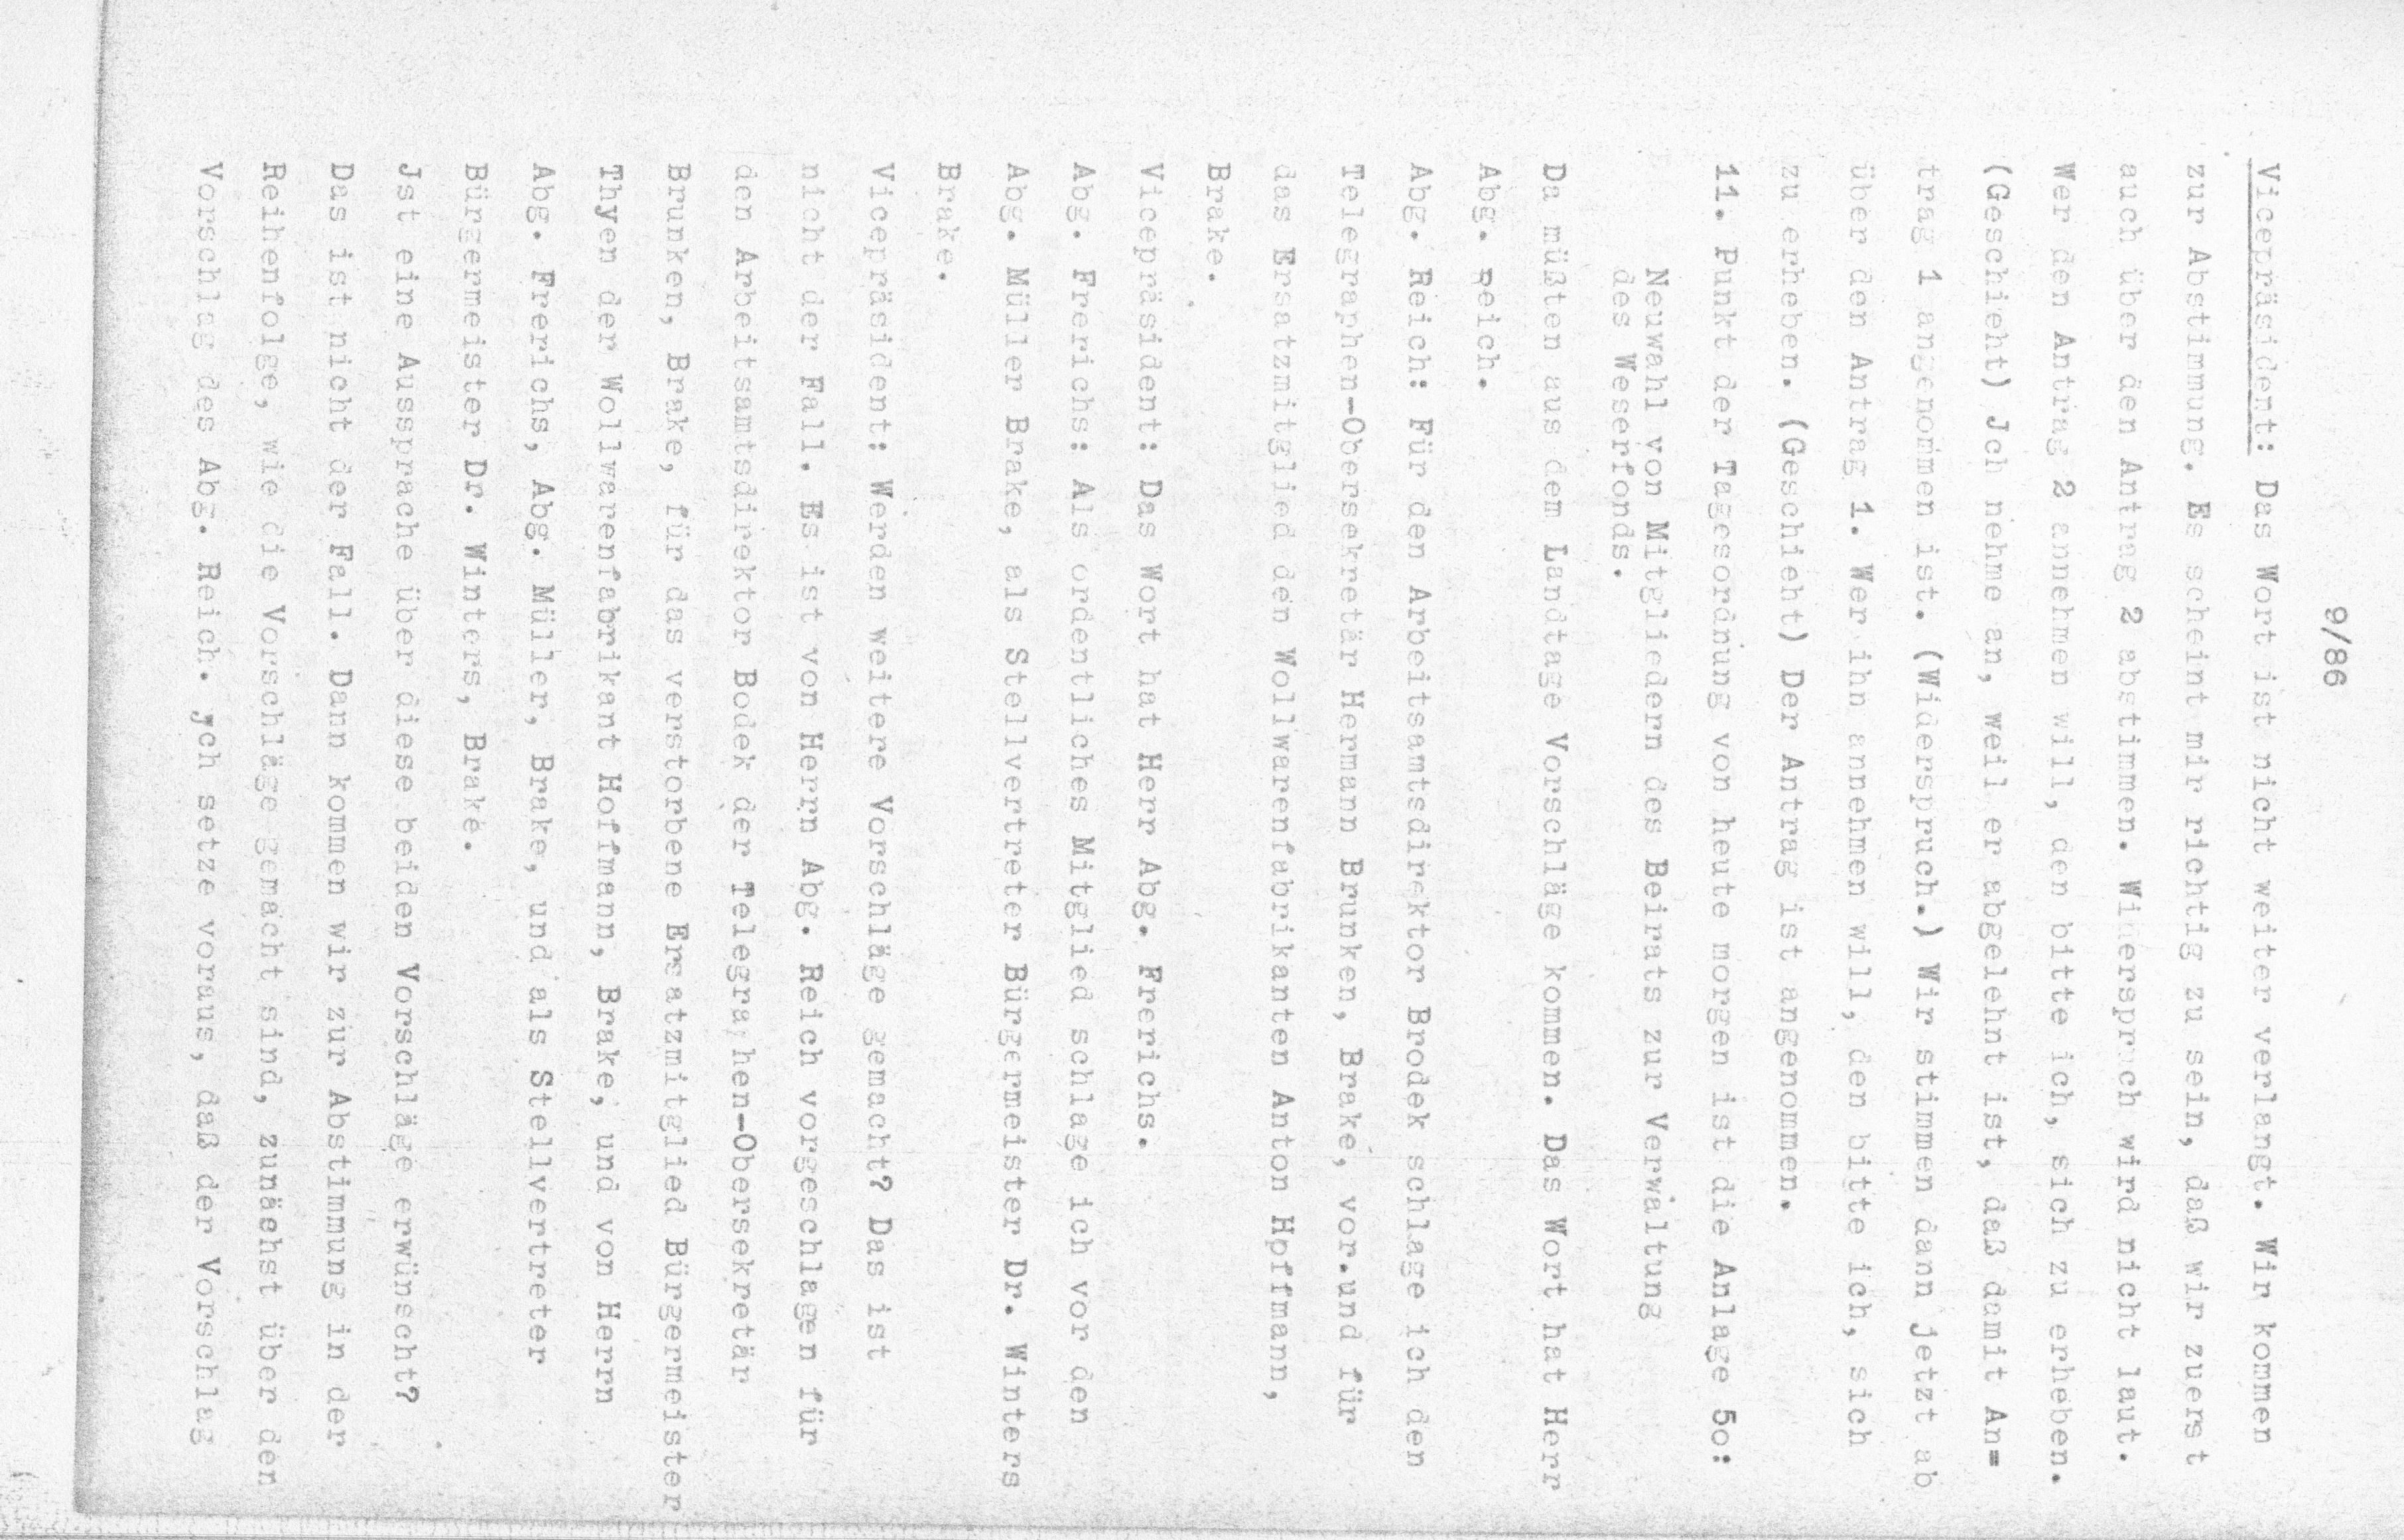 9/86
Vicepräsident: Das Wort ist nicht weiter verlangt. Wir kommen
zur Abstimmung. Es scheint mir richtig zu sein, daß wir zuerst
auch über den Antrag 2 abstimmen. Widerspruch wird nicht laut.
Wer den Antrag 2 annehmen will, den bitte ich, sich zu erheben.
(Geschieht) Jch nehme an, weil er abgelehnt ist, daß damit An=
trag 1 angenommen ist. (Widerspruch.) Wir stimmen dann jetzt ab
über den Antrag 1. Wer ihn annehmen will, den bitte ich, sich
zu erheben. (Geschieht) Der Antrag ist angenommen.
11. Punkt der Tagesordnung von heute morgen ist die Anlage 5o:
Neuwahl von Mitgliedern des Beirats zur Verwaltung
des Weserfonds.
Da müßten aus dem Landtage Vorschläge kommen. Das Wort hat Herr
Abg. Reich.
Abg. Reich: Für den Arbeitsamtsdirektor Brodek schlage ich den
Telegraphen-Obersekretär Hermann Brunken, Brake, vor.und für
das Ersatzmitglied den Wollwarenfabrikanten Anton Hpffmann,
Brake.
Vicepräsident: Das Wort hat Herr Abg. Frerichs.
Abg. Frerichs: Als ordentliches Mitglied schlage ich vor den
Abg. Müller Brake, als Stellvertreter Bürgermeister Dr. Winters
Brake.
Vicepräsident: Werden weitere Vorschläge gemacht? Das ist
nicht der Fall. Es ist von Herrn Abg. Reich vorgeschlagen für
den Arbeitsamtsdirektor Bodek der Telegraphen-Obersekretär
Brunken, Brake, für das verstorbene Ersatzmitglied Bürgermeister
Thyen der Wollwarenfabrikant Hoffmann, Brake; und von Herrn
Abg. Frerichs, Abg. Müller, Brake, und als Stellvertreter
Bürgermeister Dr. Winters, Brake.
Jst eine Aussprache über diese beiden Vorschläge erwünscht?
Das ist nicht der Fall. Dann kommen wir zur Abstimmung in der
Reihenfolge, wie die Vorschläge gemacht sind, zunäehst über den
Vorschlag des Abg. Reich. Jch setze voraus, daß der Vorschlag